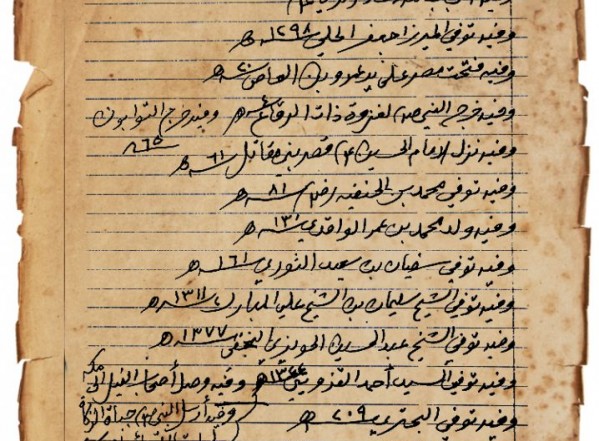 وفيه توفي الميرزا جعفر الحلي ١٢٩٨هـ
وفيه فتحت مصر على يد عمرو بن العاص ٢٠هـ
وفيه خرج النبي (ص) لغزوة ذات الرقاع ٤هـ وفيه خرج التوابون
٦٥هـ
وفيه نزل الإمام الحسين (ع) قصر بني مقاتل ٦١هـ
وفيه توفي محمد بن الحنفية (رض) ٨١هـ
وفيه ولد محمد بن عمر الواقدي ١٣٠هـ
وفيه توفي سفيان بن سعيد الثوري ١٦١هـ
وفيه توفي الشيخ سليمان بن الشيخ علي المبارك ١٣١١هـ
وفيه توفي الشيخ عبد الحسين الحويزي النجفي ١٣٧٧هـ
وفيه توفي السيد أحمد القزويني هـ وفيه وصل أصحاب الفيل الى مكة
وفيه توفي البحتري ٢٠٩هـ وفيه أرسل النبي (ص) جباة الزكاة